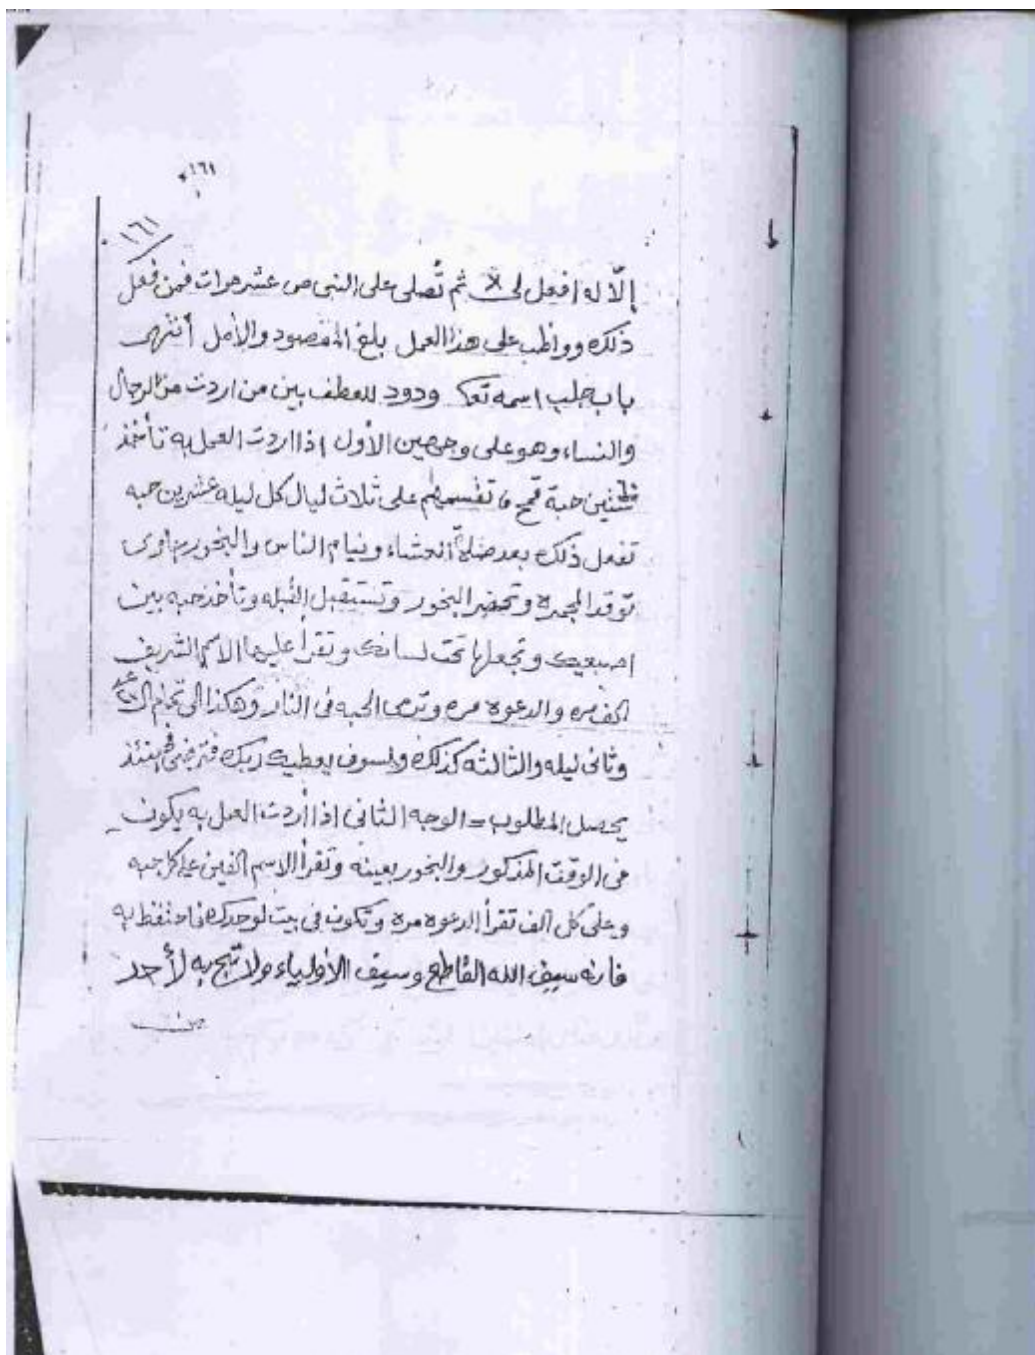 ١٦١
١٦١
إلّا له افعل لي ثم تُصلى على النبى ص عشر مرات فمن فعل
ذلك وواظب على هذا العمل بلغ المقصود والأمل أنتهى
باب جلب اسمه تعـ ودود للعطف بين من اردت من الرجال
والنساء وهو على وجهين الأول اذا اردت العمل به تأخذ
ستين حبة قمح تقسمهم على ثلاث ليال كل ليله عشرين حبه
تفعل ذلك بعد صلاة العشاء ونيام الناس والبخور جاوى
توقد المجمره وتحضر البخور وتستقبل القبله وتأخذ حبه بين
اصبعيك وتجعلها تحت لسانك وتقرأ عليها الاسم الشريف
الف مره والدعوة مره وترمى الحبه فى النار وهكذا الى تمام الـ٢٠
وثانى ليله والثالثه كذلك ولسوف يعطيك ربك فترضى فحينئذ
يحصل المطلوب = الوجه الثانى اذا أردت العمل به يكون
فى الوقت المذكور والبخور بعينه وتقرأ الاسم الفين على كل حبه
وعلى كل الف تقرأ الدعوه مره وتكون فى بيت لوحدك فاحتفظ به
فانه سيف الله القاطع وسيف الأولياء ولا تبح به لأحد
من